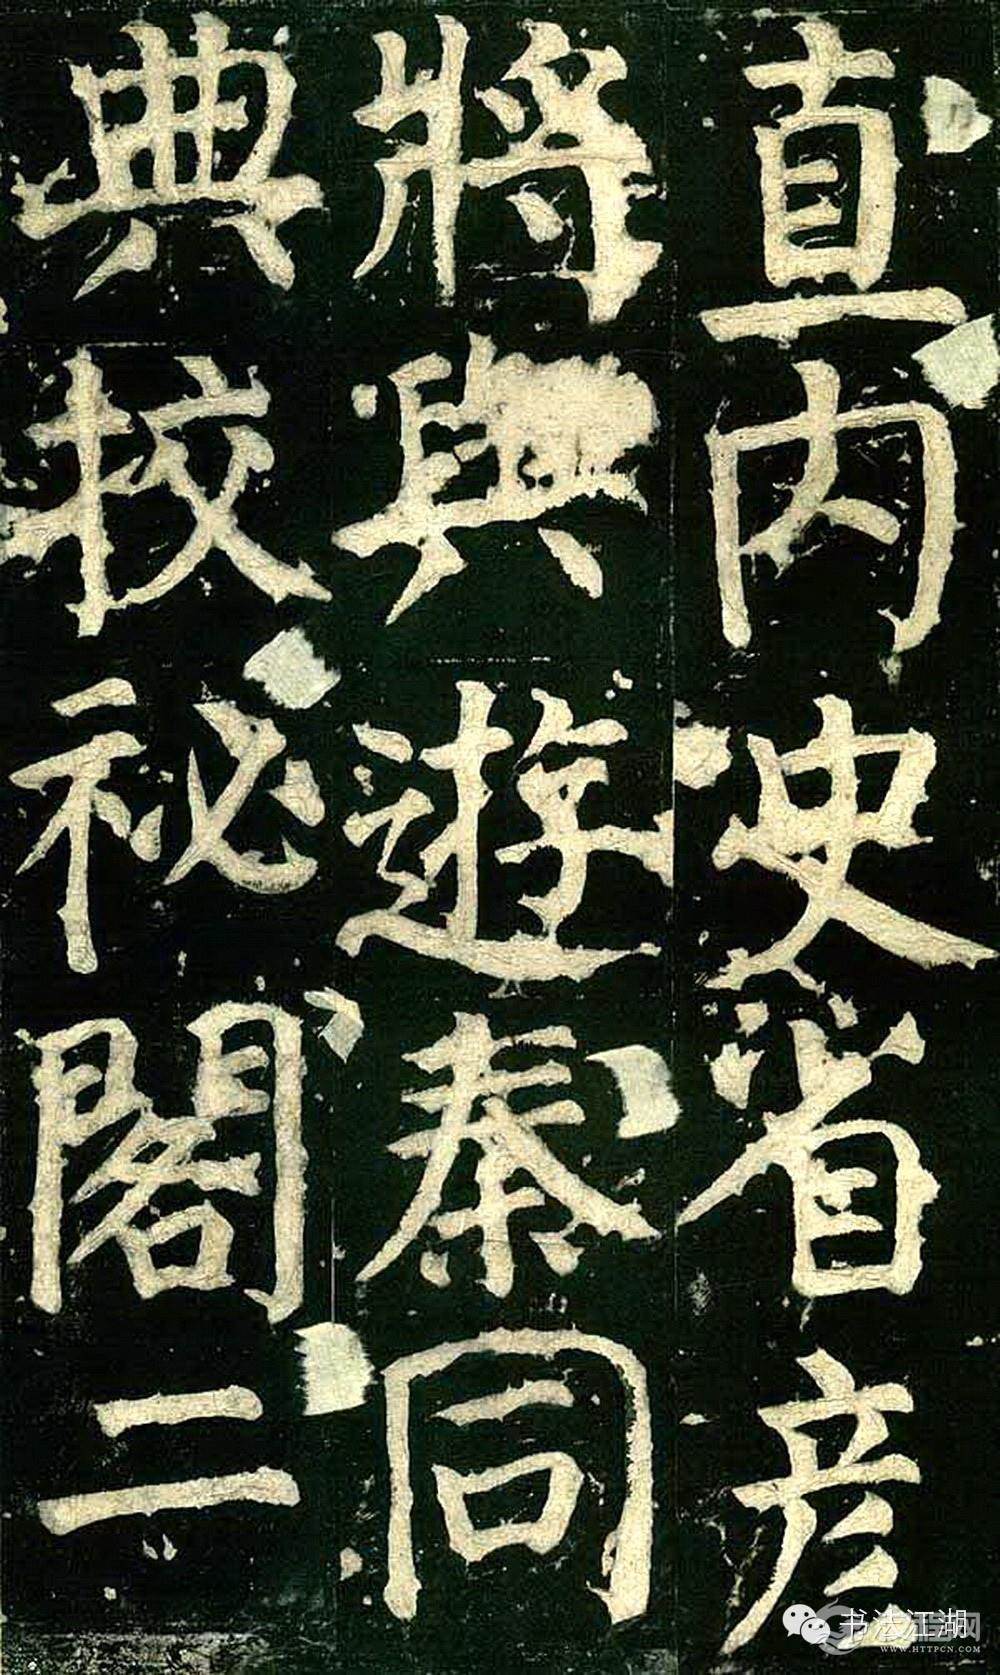 直內史省彥
將與遊秦同
典校祕閣二
书法江湖
WWW.HTTPCN.COM